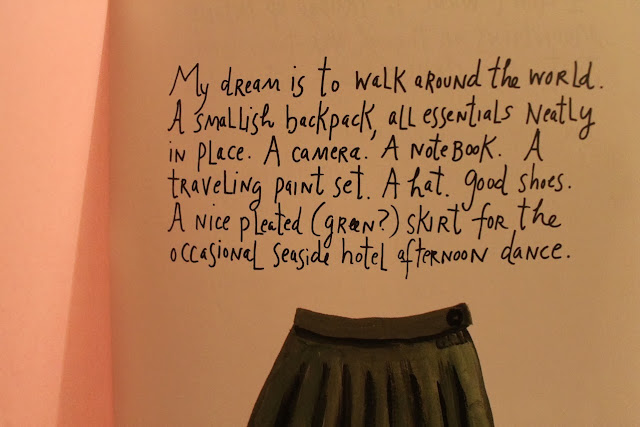 My dream is to walk around the world.
A smallish backpack, all essentials neatly
in place. A camera. A notebook. A
traveling paint set. A hat. Good shoes.
A nice pleated (green?) skirt for the
occasional seaside hotel afternoon dance.